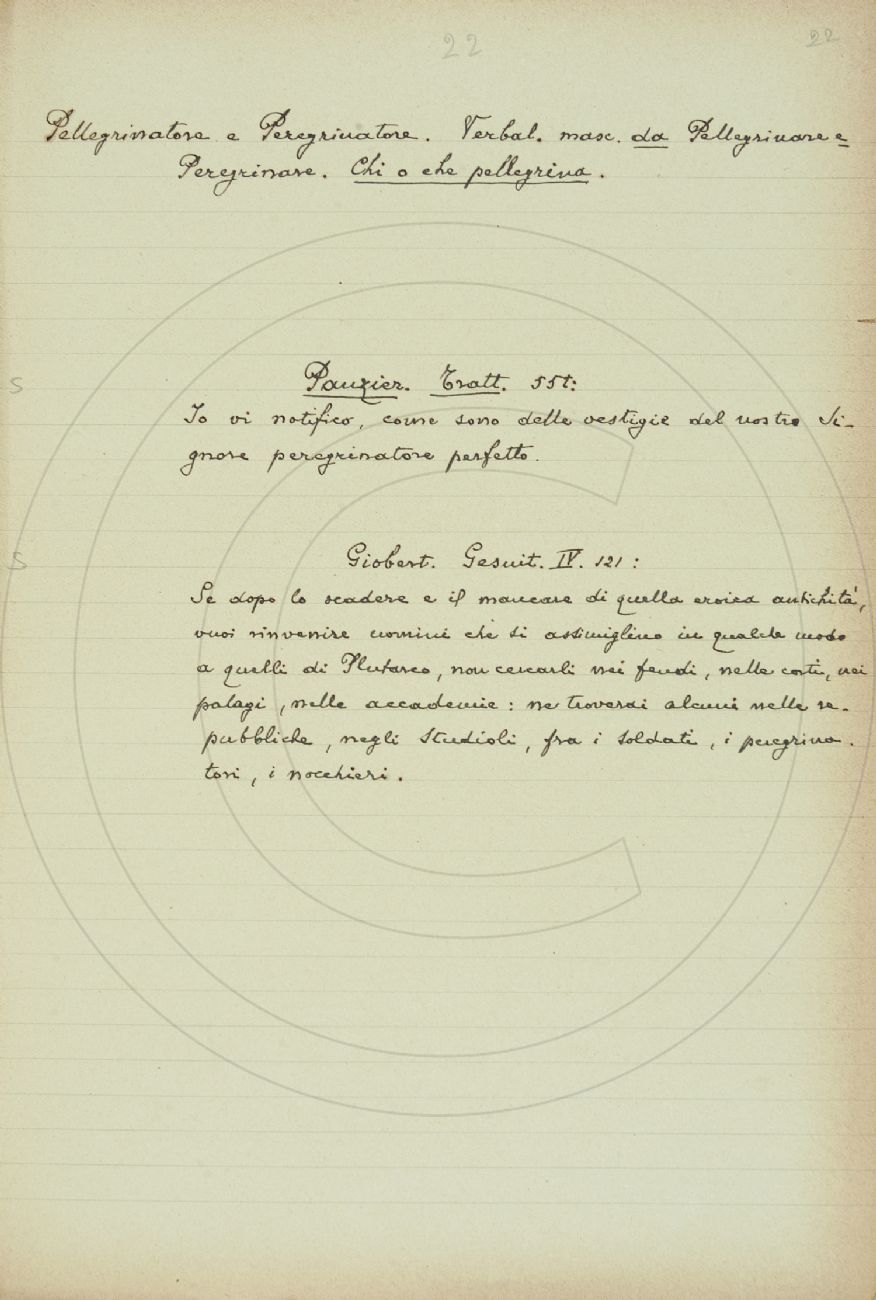 22 22
Pellegrinatore e Peregrinatore. Verbal. masc. da Pellegrinare e
Peregrinare. Chi o che pellegrina.
S
Panzier. Tratt. 551:
Io vi notifico, come sono delle vestigie del nostro Si-
gnore peregrinatore perfetto.
S
Giobert. Gesuit. IV. 121:
Se dopo lo scadere e il mancare di quella eroica antichità,
vuoi rinvenire uomini che si assimiglino in qualche modo
a quelli di Plutarco, non cercarli nei feudi, nelle corti, nei
palagi, nelle accademie: ne troverai alcuni nelle re-
pubbliche, negli studioli, fra i soldati, i peregrina-
tori, i nocchieri.